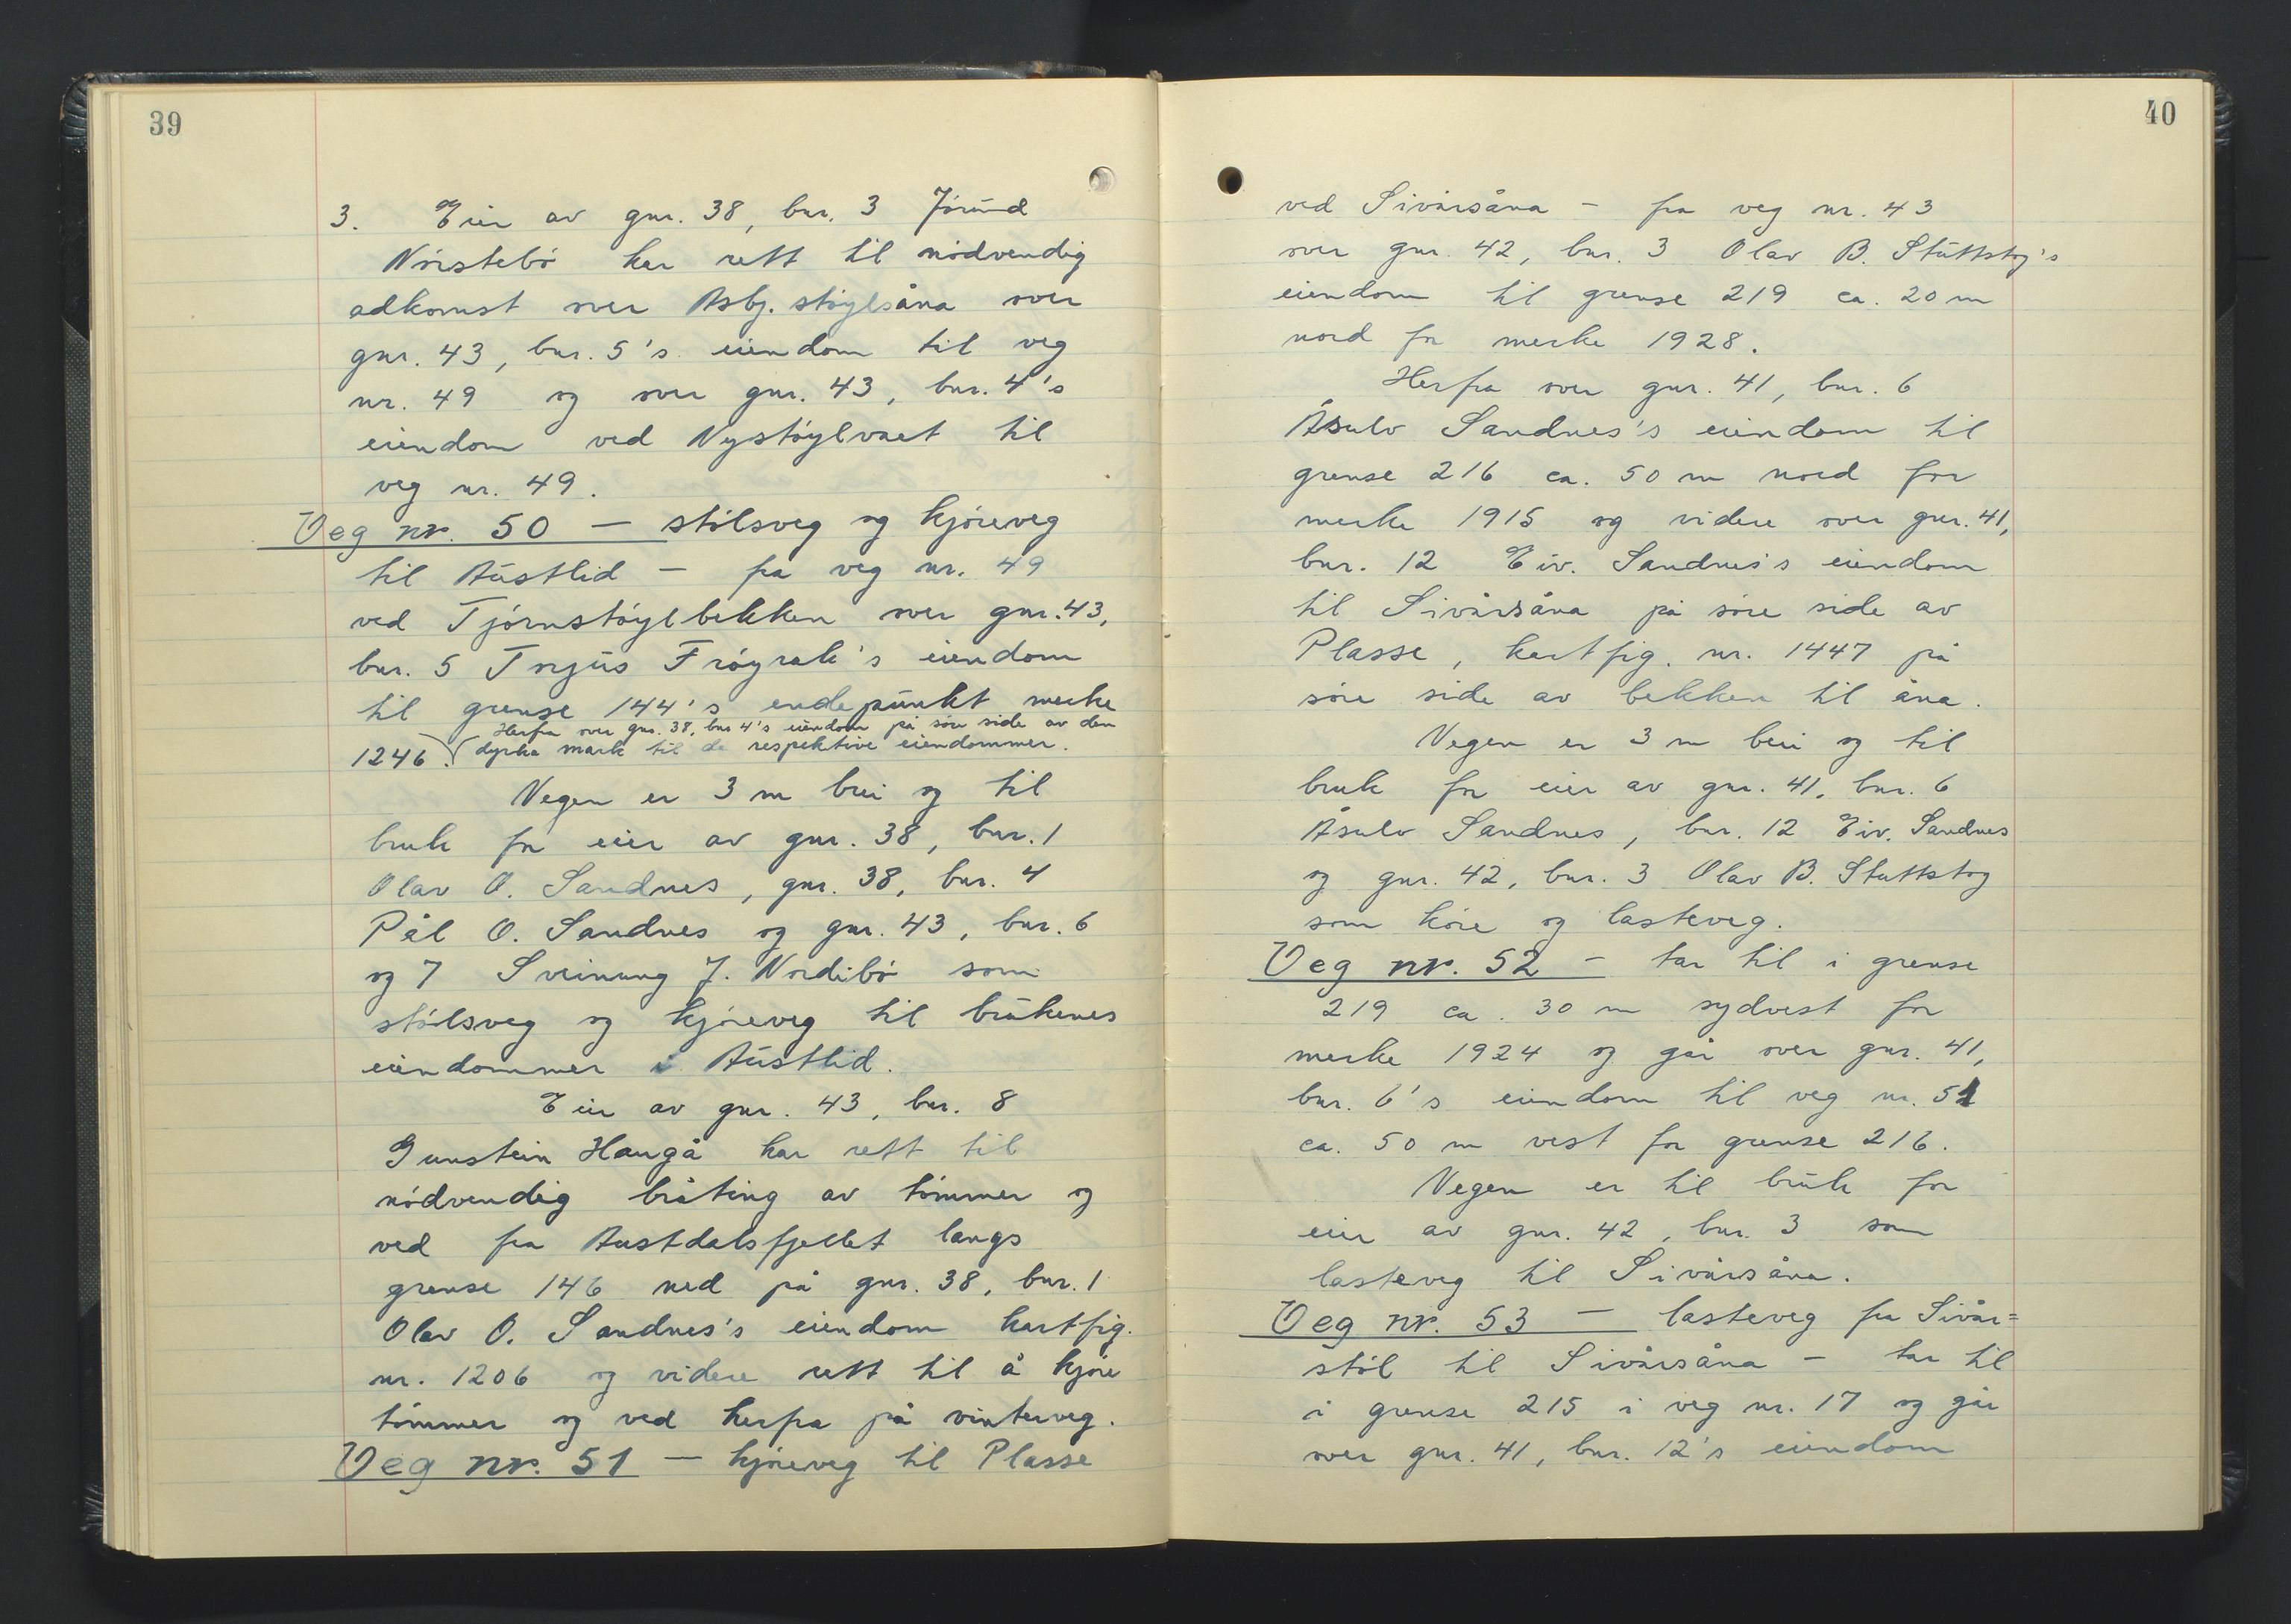 39
3. Eier av gnr. 38, bnr. 3 Jórund
Nórstebó har rett til nódvendig
adkomst over Asbj. stóylsåna over
gnr. 43, bnr. 5's eiendom til veg
nr. 49 og over gnr. 43, bnr. 4's
eiendom ved Nystóylvaet til
veg nr. 49.
Veg nr. 50 — stólsveg og kjóreveg
til Austlid — fra veg nr. 49
ved Tjórnstóylbekken over gnr. 43,
bnr. 5 Torjus Fróyrak's eiendom
til grense 144's endepunkt merke
Herfra over gnr. 38, bnr 4's eiendom på sóre side av den
1246. (dyrka mark til de respektive eiendommer.
Vegen er 3 m brei og til
bruk for eier av gnr. 38, bnr. 1
Olav O. Sandnes, gnr. 38, bnr. 4
Pål O. Sandnes og gnr. 43, bnr. 6
og 7 Sveinung J. Nordibó som
stólsveg og kjóreveg til brukenes
eiendommer i Austlid.
Eier av gnr. 43, bnr. 8
Gunstein Haugå har rett til
nódvendig bråting av tómmer og
ved fra Austdalsfjellet langs
grense 146 ned på gnr. 38, bnr. 1
Olav O. Sandnes's eiendom kartfig.
nr. 1206 og videre rett til å kjóre
tómmer og ved herfra på vinterveg.
Veg nr. 51 — kjóreveg til Plasse
40
ved Sivårsåna — fra veg nr. 43
over gnr. 42, bnr. 3 Olav B. Stuttstog's
eiendom til grense 219 ca. 20 m
nord for merke 1928.
Herfra over gnr. 41, bnr. 6
Åsulv Sandnes's eiendom til
grense 216 ca. 50 m nord for
merke 1915 og videre over gnr. 41,
bnr. 12 Eiv. Sandnes's eiendom
til Sivårsåna på sóre side av
Plasse, kartfig. nr. 1447 på
sóre side av bekken til åna.
Vegen er 3 m brei og til
bruk for eier av gnr. 41, bnr. 6
Åsulv Sandnes, bnr. 12 Eiv. Sandnes
og gnr. 42, bnr. 3 Olav B. Stuttstog
som kóre og lasteveg.
Veg nr. 52 — tar til i grense
219 ca. 30 m sydvest for
merke 1924 og går over gnr. 41,
bnr. 6's eiendom til veg nr. 51
ca. 50 m vest for grense 216.
Vegen er til bruk for
eier av gnr. 42, bnr. 3 som
lasteveg til Sivårsåna.
Veg nr. 53 — lasteveg fra Sivår=
stól til Sivårsåna — tar til
i grense 215 i veg nr. 17 og går
over gnr. 41, bnr. 12's eiendom